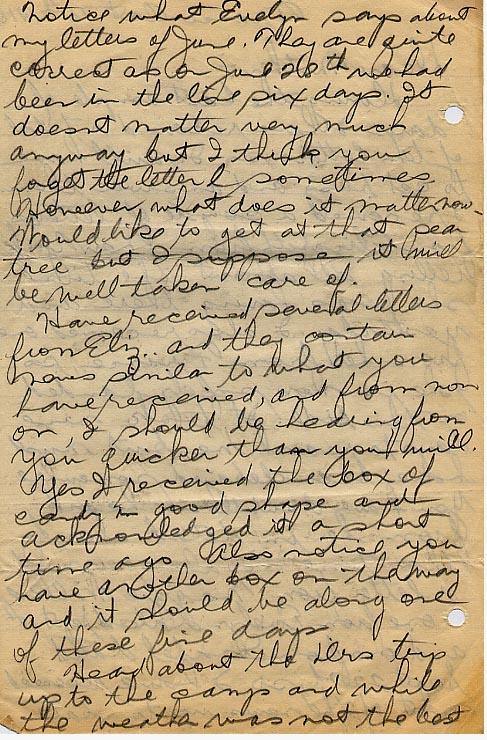 Notice what Evelyn says about
my letters of June. They are quite
correct as on June 28th we had
been in the line six days. It
doesnt matter very much
anyway but I think you
forget the letter sometimes
However, what does it matter now.
Would like to get at that pear
tree but I suppose it will
be well taken care of.
Have received several letters
from Eliz.. and they contain
news similar to what you
have received, and from now
on, I should be hearing from
you quicker than you will.
Yes I received the box of
candy in good shape and
acknowledged it a short
time ago Also notice you
have another box on the way
and it should be along one
of these fine days
Hear about the trip
up to the camp and while
the weather was not the best